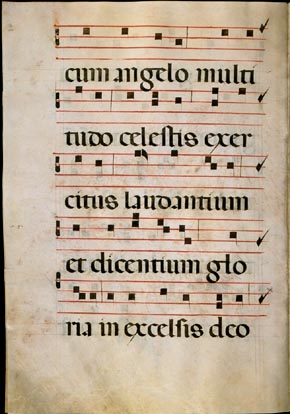 cum angelo multi
tudo celestis exer
citus laudantium
et dicentium glo
ria in excelsis deo